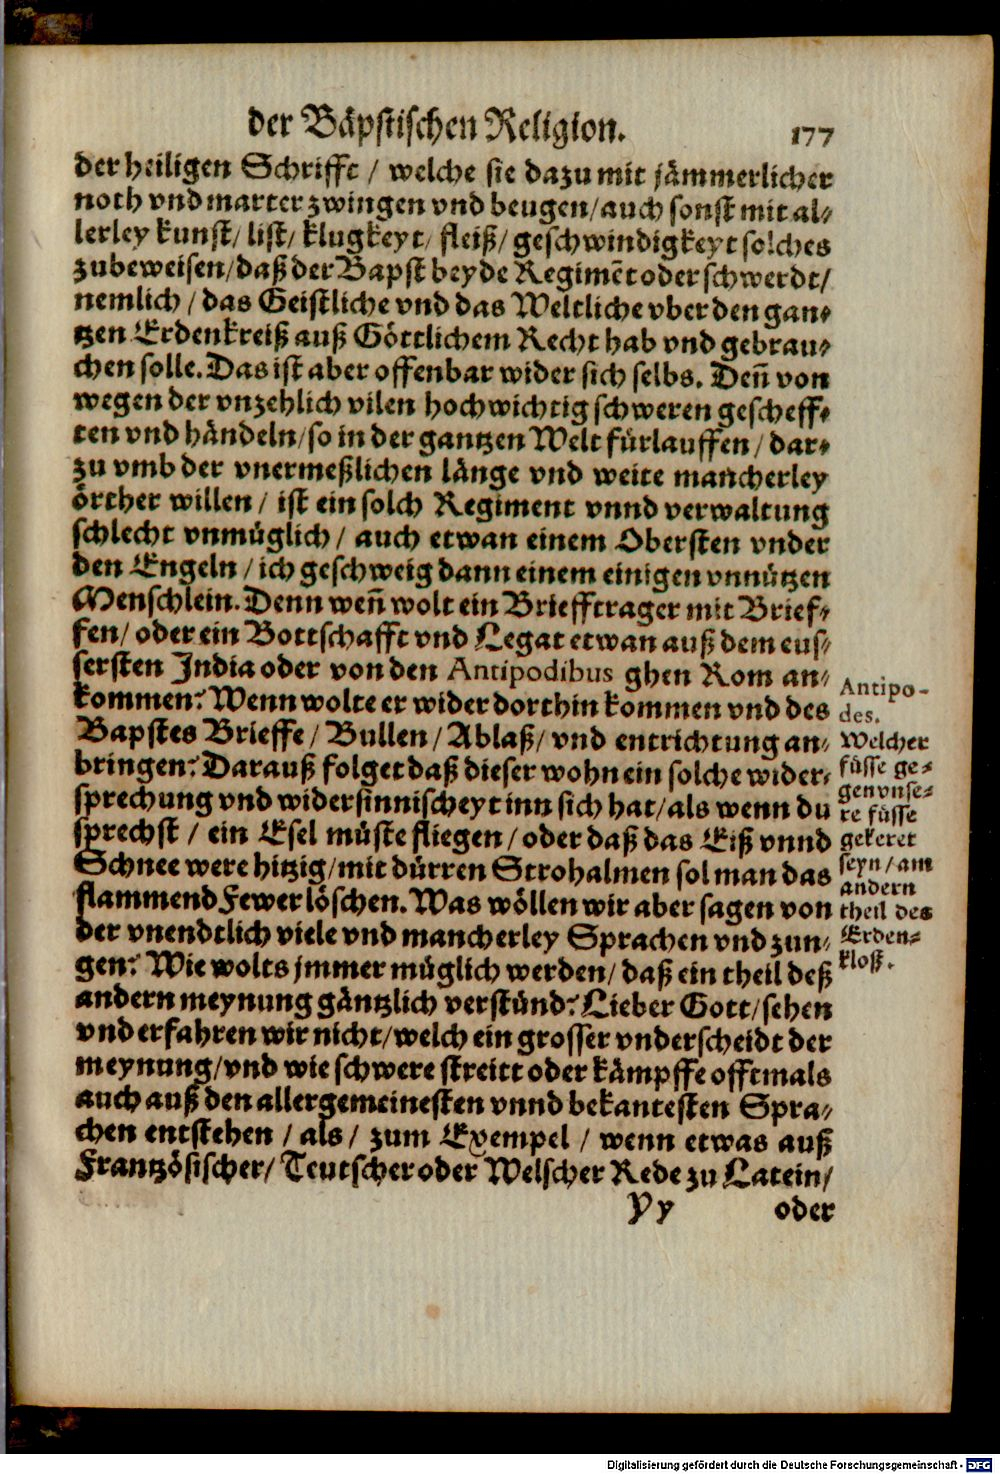 der Bäpstischen Religion. 177
der heiligen Schrifft / welche sie dazu mit jämmerlicher
noth vnd marter zwingen vnd beugen/ auch sonst mit al-
lerley kunst/ list/ klugkeyt/ fleiß/ geschwindigkeyt solches
zubeweisen/ daß der Bapst beyde Regimẽt oder schwerdt/
nemlich / das Geistliche vnd das Weltliche vber den gan-
tzen Erdenkreiß auß Göttlichem Recht hab vnd gebrau-
chen solle. Das ist aber offenbar wider sich selbs. Deñ von
wegen der vnzehlich vilen hochwichtig schweren gescheff-
ten vnd händeln/ so in der gantzen Welt fürlauffen / dar-
zu vmb der vnermeßlichen länge vnd weite mancherley
örther willen / ist ein solch Regiment vnnd verwaltung
schlecht vnmüglich / auch etwan einem Obersten vnder
den Engeln / ich geschweig dann einem einigen vnnützen
Menschlein. Denn weñ wolt ein Briefftrager mit Brief-
fen/ oder ein Bottschafft vnd Legat etwan auß dem eus-
sersten India oder von den Antipodibus ghen Rom an-
kommen? Wenn wolte er wider dorthin kommen vnd des
Bapstes Brieffe / Bullen / Ablaß/ vnd entrichtung an-
bringen? Darauß folget daß dieser wohn ein solche wider-
sprechung vnd widersinnischeyt inn sich hat/ als wenn du
sprechst / ein Esel müste fliegen / oder daß das Eiß vnnd
Schnee were hitzig/ mit dürren Strohalmen sol man das
flammend Fewer löschen. Was wöllen wir aber sagen von
der vnendtlich viele vnd mancherley Sprachen vnd zun-
gen? Wie wolts jmmer müglich werden/ daß ein theil deß
andern meynung gäntzlich verstünd? Lieber Gott/ sehen
vnd erfahren wir nicht/ welch ein grosser vnderscheidt der
meynung/ vnd wie schwere streitt oder kämpffe offtmals
auch auß den allergemeinesten vnnd bekantesten Spra-
chen entstehen / als / zum Exempel / wenn etwas auß
Frantzösischer/ Teutscher oder Welscher Rede zu Latein/
Yy oder
Antipo-
des.
Welcher
füsse ge-
gen vnse-
re füsse
gekeret
seyn / am
andern
theil des
Erden-
kloß.
Digitalisierung gefördert durch die Deutsche Forschungsgemeinschaft - DFG